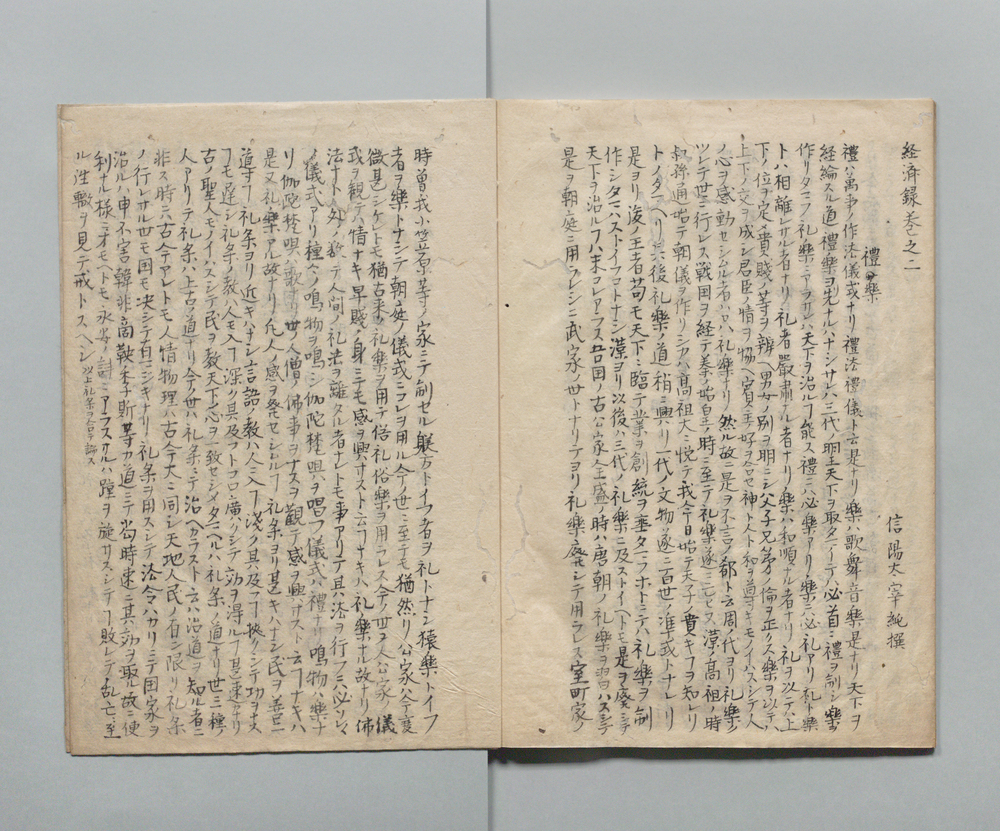 経済録巻之二
信陽太宰純撰
禮樂
禮ハ萬事ノ作法儀式ナリ禮法禮儀ト云是ナリ樂ハ歌舞音樂是ナリ天下ヲ
経綸スル道禮樂ヨリ先ナルハナシサレハ三代ノ明王天下ヲ取タマイテハ必首ニ禮ヲ制シ樂ヲ
作リタマフ礼樂ニアラサレハ天下ヲ治ルコ能ス禮ニハ必樂アリ樂ニハ必礼アリ礼ト樂
トハ相離レサル者ナリ礼者嚴肅ナル者ナリ樂ハ和順ナル者ナリ礼ヲ以テハ上
下ノ位ヲ定メ貴賤ノ等ヲ辨ヘ男女ノ別ヲ明ニシ父子兄弟ノ倫ヲ正クス樂ヲ以テハ
上下ノ交ヲ成シ君臣ノ情ヲ和ケ賓主ノ好ヲ合セ神ト人トヲ和ヲ導キモイハスシテ人
ノ心ヲ感動セシムル者ハ只礼樂ナリ然ル故ニ是ヲ不言ノ教ト云周ノ代ヨリ礼樂
ツレテ世ニ行レス戦国ヲ経テ秦ノ始皇ノ時ニ至テ礼樂遂ニ亡ヒヌ漢ノ高祖ノ時
叔孫通始テ朝儀ヲ作リシカハ高祖大ニ悦テ我今日始テ天子ノ貴キコヲ知レリ
トノタマヘリ其後礼樂ノ道稍ニ興リ一代ノ文物遂ニ百世ノ準或トナレリ
是ヨリ後ノ王者苟モ天下ニ臨テ業ヲ創統ヲ垂タマフホトニテハ礼樂ヲ制
作シタマハストイフコトナシ漢ヨリ以後ハ三代ノ礼樂ニ及ストイヘトモ是ヲ廢シテ
天下ヲ治ルコハ未コレアラス吾国ノ古公家全盛ノ時ハ唐朝ノ礼樂ヲ習ハスシテ
是ヲ朝庭ニ用ラレシニ武家ノ世トナリテヨリ礼樂廢モシテ用ラレス室町家ノ
時曽我小笠原等ノ家ニテ制セル躾方トイフ者ヲ礼トナシ猿樂トイフ
者ヲ樂トナシテ朝庭ノ儀式ニコレヲ用ル今ノ世ニ至テモ猶然リ公家ハ今衰
微甚シケレトモ猶古来ノ礼樂ヲ用テ俗礼俗樂ヲ用ラレス今ノ世ノ人公家ノ儀
式ヲ観テ情ナキ卑賤ノ身ニモ感ヲ興サストイフコナキハ礼樂ナル故ナリ佛
法ナト外ノ教テ人間ノ礼法ヲ離タル者ナレトモ事アリテ其ハ法ヲ行フニハ必ソレ
ノ儀式アリ種々ノ鳴物ヲ鳴シ伽陀梵唄ヲ唱フ儀式ハ禮ナリ鳴物ハ樂ナ
リ伽陀梵唄ハ歌ナリ世ノ人僧ノ佛事ヲナスヲ観テ感ヲ興サスト云コナキハ
是又礼樂アル故ナリ凡人ノ感ヲ発セシムルコ礼楽ヨリ甚キハナシ民ヲ善ニ
道コ礼楽ヨリ近キハナシ言語ノ教ハ人ニ入コ浅ク其及フコ挟クシテ功ヲナス
コモ遅シ礼楽ノ教ハ人ニ入コ深ク其及フトコロ廣クシテ功ヲ得ルコ甚速ナリ
古ノ聖人モノイハスシテ民ヲ教天下ノ心ヲ一致セシメタマヘルハ礼楽ノ道ナリ世ニ種々ノ
人アリテ礼楽ハ上古ノ道ナリ今ノ世ハ礼楽ニテ治ヘカラスト云ハ治道ヲ知ル者ニ
非ス時ニ古今アレトモ人情物理ハ古今大ニ同シ天地人民ノ有ン限リ礼楽
ノ行レサル世モ国モ决シテ有マシキナリ礼楽ヲ用スシテ法令ハカリニテ国家ヲ
治ルハ申不害韓非商鞅李斯等カ道ニテ当時速ニ其功ヲ取ル故ニ便
利ナル様ニオモヘトモ永安ノ計ニアラスタルハ踵ヲ旋ラスシテコ敗レテ乱亡ニ至
ル往轍ヲ見テ戒トスヘシ以上礼楽ヲ合テ論ス